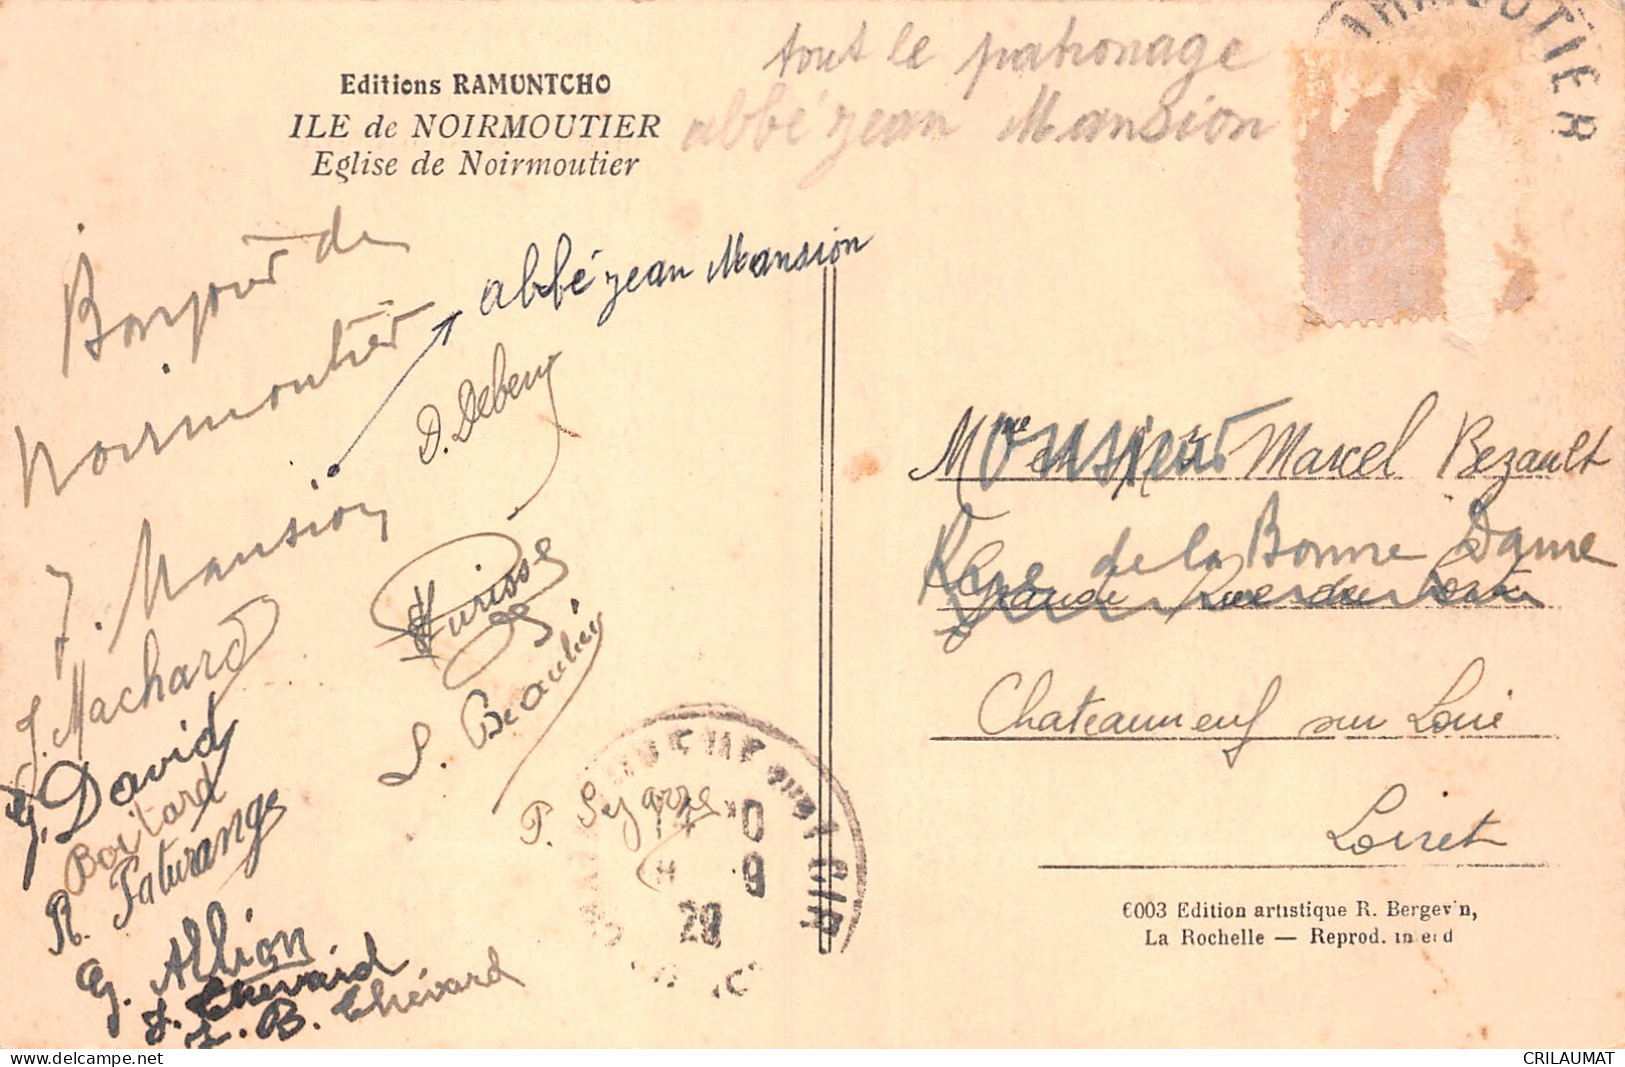 Editions RAMUNTCHO
ILE de NOIRMOUTIER
Eglise de Noirmoutier
tout le patronage
abbé jean Mansion
Bonjour de
Noirmoutier
abbé jean Mansion
J. Mansion
D. Debeny
Hurisse
L. Beaulieu
J. Machard
G. David
Boitard
R. Paturange
G. Allion
J. Thevard
L. B. Thévard
P.
14
9
29
Monsieur Marcel Bezault
Rue de la Bonne Dame
Grande Rue du
Chateauneuf sur Loire
Loiret
6003 Edition artistique R. Bergevin,
La Rochelle — Reprod. interd
CRILAUMAT